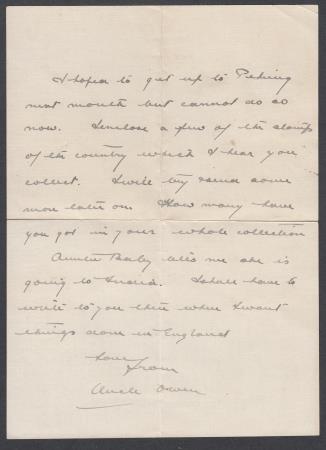 I hoped to get up to Peking
next month but cannot do so
now. I enclose a few of the stamps
of the country which I hear you
collect. I will try send some
more later on. How many have
you got in your whole collection
Auntie tells me she is
going to I shall have to
write to you then when I want
things done in England
Love from
Uncle Owen